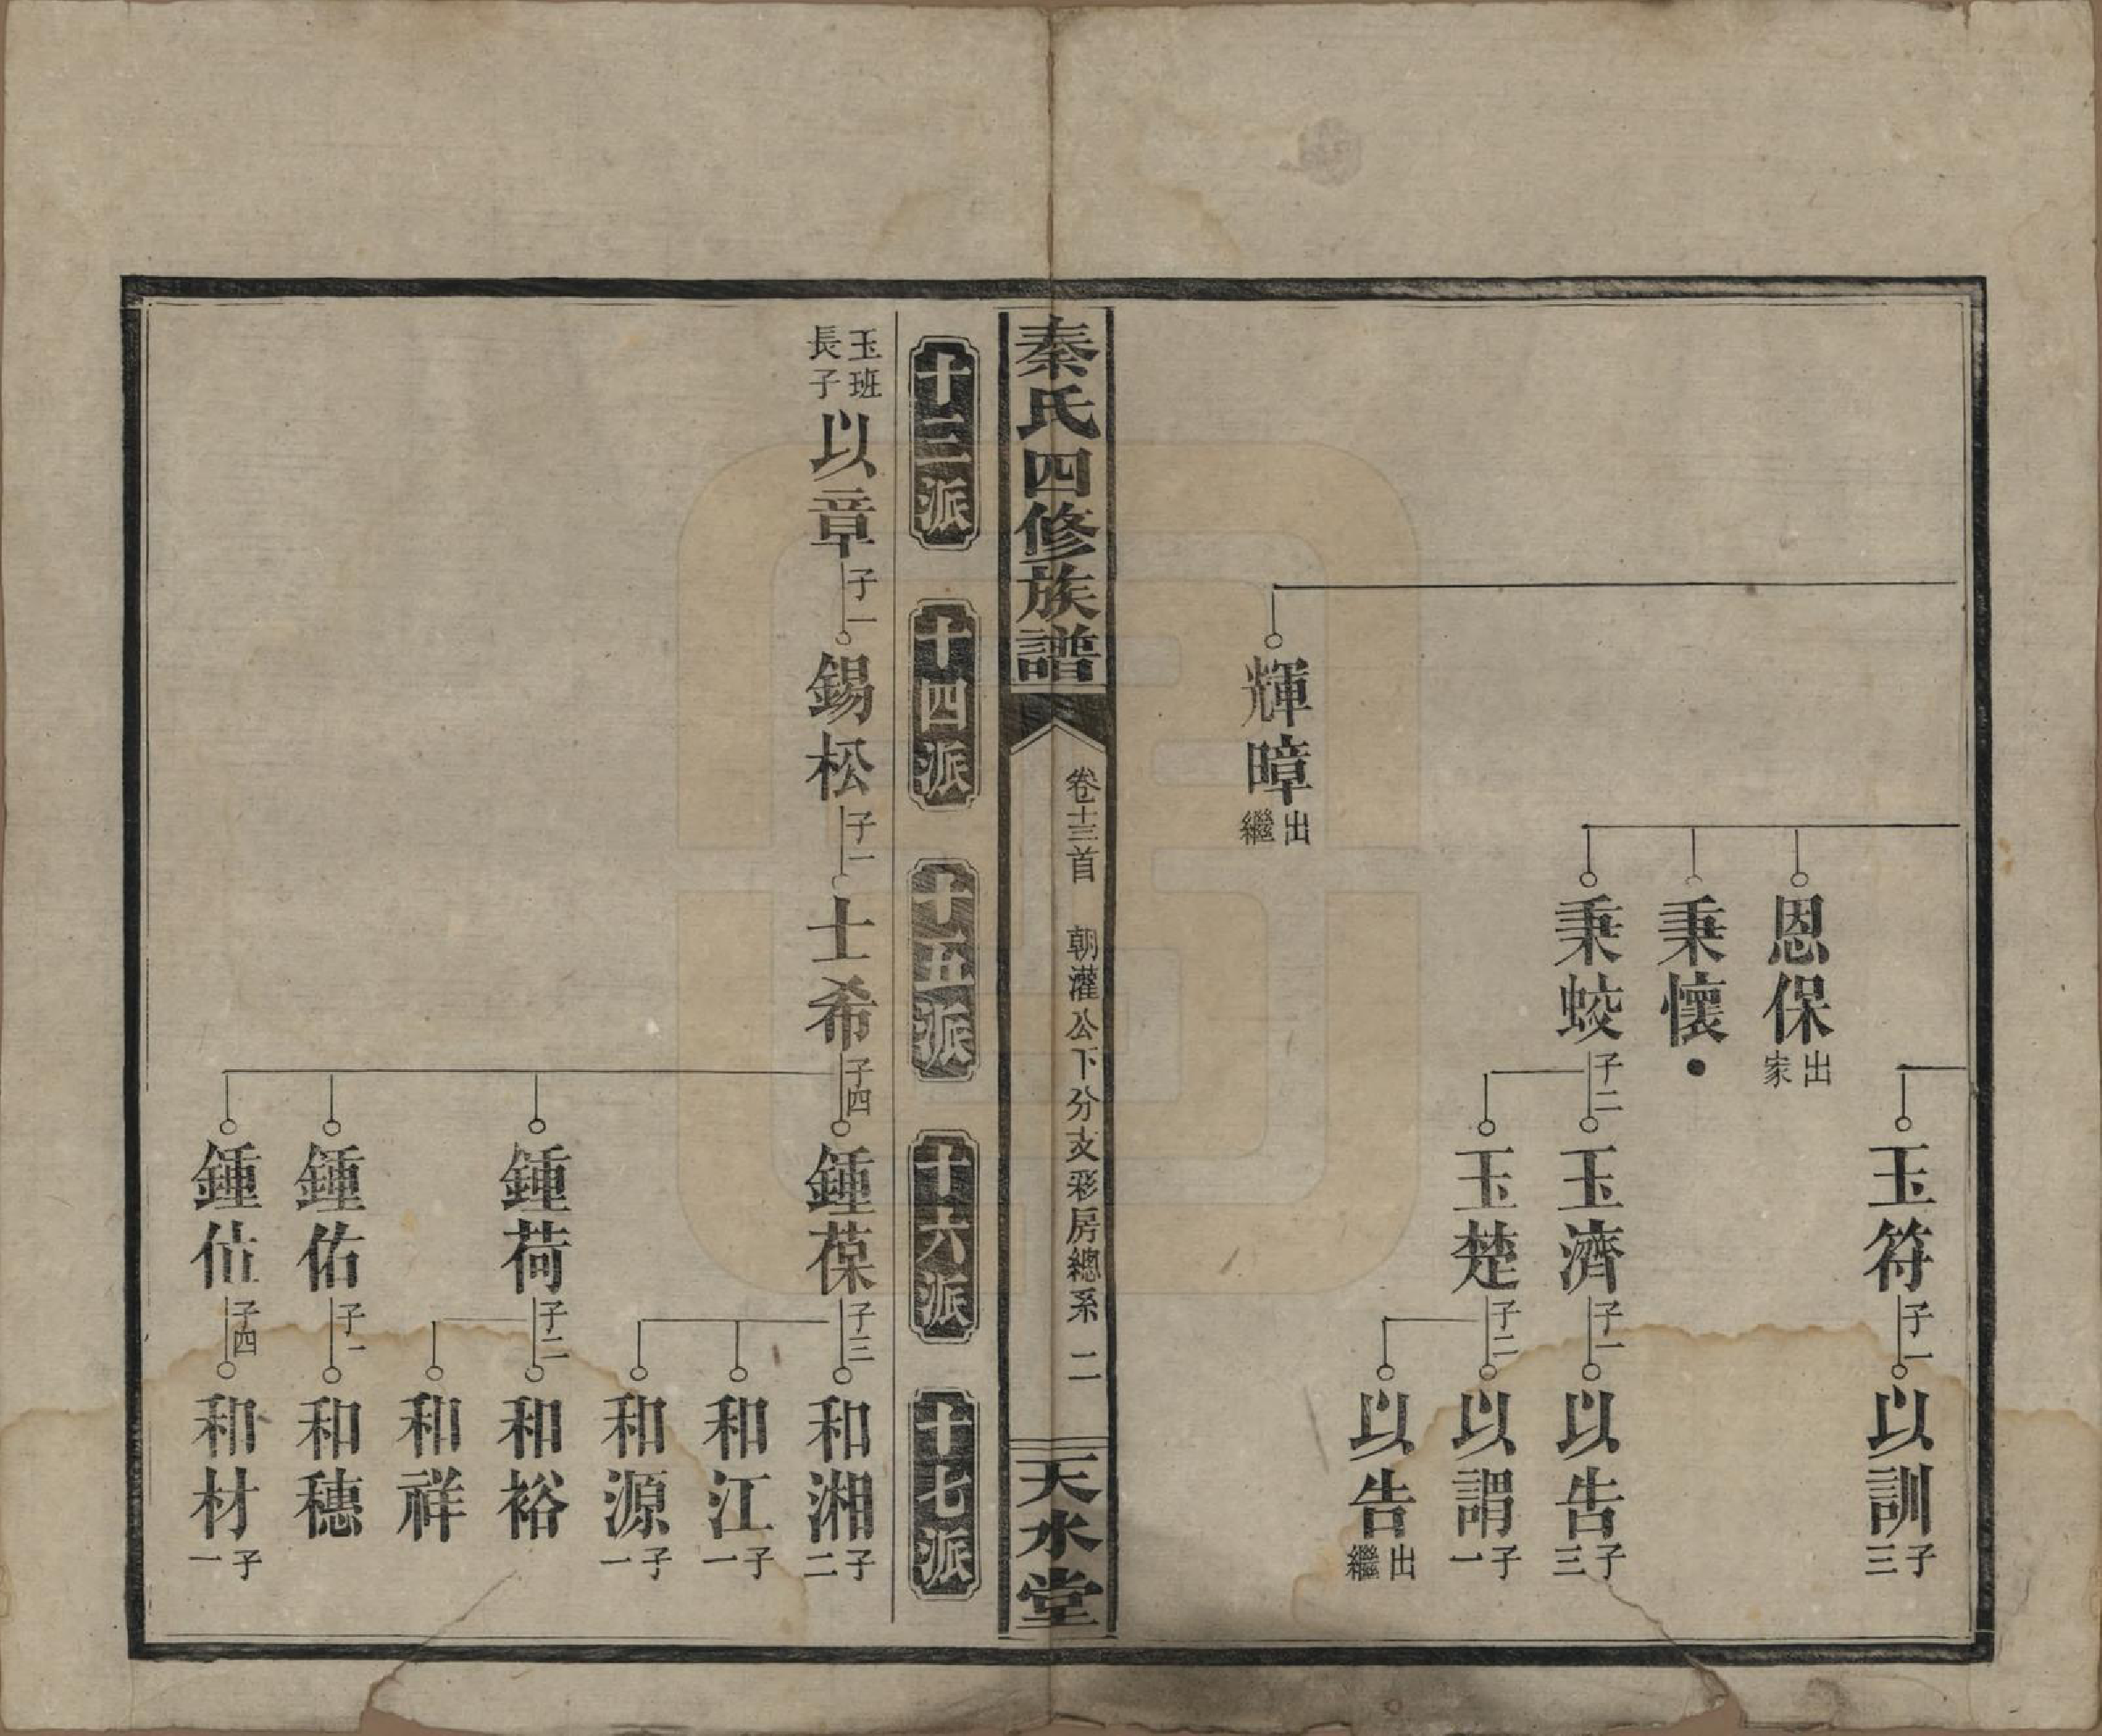 玉符 子一
以訓 子三
恩保 出家
秉懷
秉蛟 子二
玉濟 子一
以告 子三
玉楚 子二
以謂 子一
以告 出繼
輝暲 出繼
秦氏四修族譜
卷十三首 朝灌公下分支彩房總系 二
天水堂
十三派
十四派
十五派
十六派
十七派
玉班長子
以章 子一
錫松 子一
士希 子四
鍾葆 子三
和湘 子二
和江 子一
和源 子一
鍾荷 子二
和裕
和祥
鍾佑 子一
和穗
鍾佔 子四
和材 子一